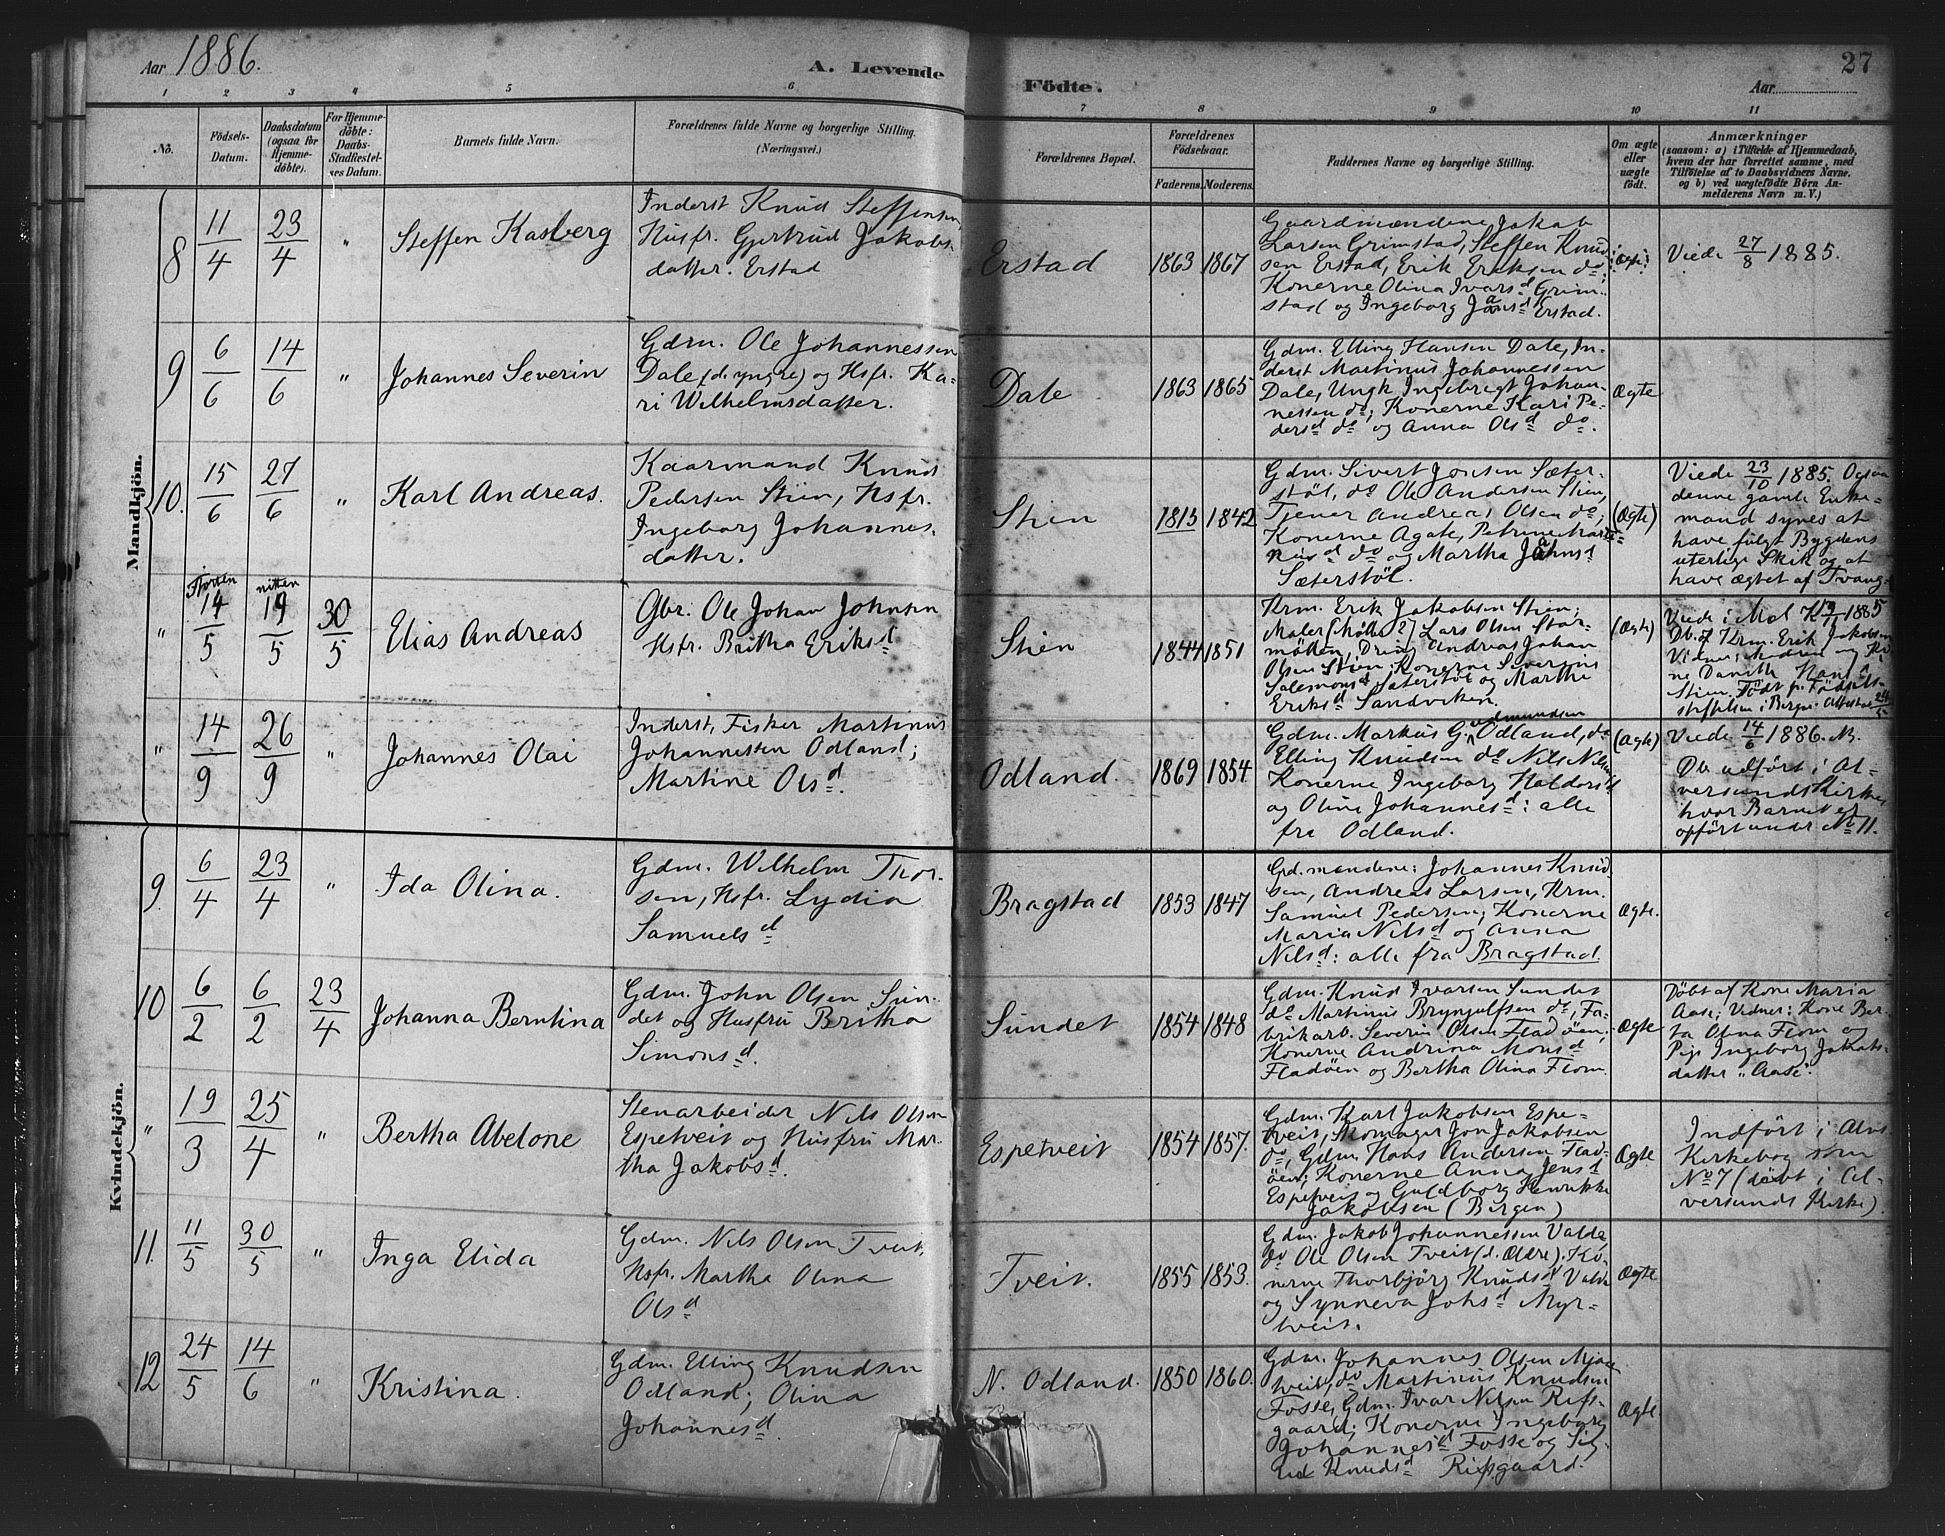 Aar 1886.
A. Levende
Födte.
Aar
27
1 2 3 4 5 6 7 8 9 10 11
No.
Födsels-
Datum.
Daabsdatum
(ogsaa for
Hjemme-
döbte).
For Hjemme-
döbte:
Daabs-
Stadfæstel-
ses Datum.
Barnets fulde Navn.
Forældrenes fulde Navne og borgerlige Stilling.
(Næringsvei.)
Forældrenes Bopæl.
Forældrenes
Födselsaar.
Faderens. Moderens.
Faddernes Navne og borgerlige Stilling.
Om ægte
eller
uægte
födt.
Anmærkninger
(saasom: a) i Tilfælde af Hjemmedaab,
hvem der har forrettet samme, med
Tilföielse af to Daabsvidners Navne,
og b) ved uægtefödte Börn An-
melderens Navn m. V.)
Mandkjön.
8
11/4
23/4
"
Steffen Kasberg
Inderst Knud Steffensen,
Husfr. Gjertrud Jakobs-
datter. Erstad
Erstad
1863 1867
Gaardmændene Jakob
Larsen Grimstad, Steffen Knud-
sen Erstad, Erik Eriksen do;
Konerne Olina Ivarsd Grim-
stad og Ingeborg Erstad.
Viede 27/8 1885.
9
6/6
14/6
"
Johannes Severin
Gdm. Ole Johannessen
Dale (d. yngre) og Hsfr. Ka-
ri Wilhelmsdatter.
Dale
1863 1865
Gdm. Elling Hansen Dale, In-
derst Martinus Johannessen
Dale, Ungk Ingebrigt Johan-
nessen do; Konerne Kari Pe-
dersd do og Anna Olsd do.
Ægte
10.
15/6
27/6
"
Karl Andreas.
Kaarmand Knud
Pedersen Stien, Hsfr.
Ingeborg Johannes-
datter.
Stien
1813 1842
Gdm. Sivert Jonsen Sæter-
stöl, do Ole Andersen Stien,
Tjener Andreas Olsen do;
Konerne Agate, Petrine Marti-
nusd do og Martha
Sæterstöl.
(Ægte)
Viede 23/10 1885. Ogsaa
denne gamle Enke-
mand synes at
have fulgt Bygdens
uterlige Skik og at
have ægtet af Tvang.
"
Fjorten
14/5
nitten
19/5
30/5
Elias Andreas
Gbr. Ole Johan Johnsen
Hsfr. Britha Eriksd
Stien
1844 1851
Krm. Erik Jakobsen Stien;
Maler (Möller?) Lars Olsen Stor-
möllen, Dreng Andreas Johan
Olsen Stien; Konerne Severine
Salemonsd Sæterstöl og Marthe
Eriksd Sandviken.
(Ægte)
Viede i 1885
Db. af Krm. Erik Jakobsen
Vidner: Madren og
ne
Stien. Födt p. Födsels-
stiftelsen i Bergen
"
14/9
26/9
"
Johannes Olai
Inderst, Fisker Martinus
Johannessen Odland;
Martine Olsd.
Odland.
1869 1854
Gdm. Markus Gudmundsen Odland, do
Elling Knudsen do Nils Nilsen
Konerne Ingeborg Haldorsd
og Oline Johannesd: alle
fra Odland.
(Ægte)
Viede 14/6 1886. NB.
Db. udfört i Al-
versunds Kirke,
hvor Barnet er
opfört under No 11.
Kvindekjön.
9.
6/4
23/4
"
Ida Olina.
Gdm. Wilhelm Thor-
sen, Hsfr. Lydia
Samuelsd
Bragstad
1853 1847
Grd. mændene: Johannes Knud-
sen, Andreas Larsen, Krm.
Samuel Pedersen; Konerne
Maria Nilsd og Anna
Nilsd: alle fra Bragstad.
Ægte.
10
6/2
6/2
23/4
Johanna Berntina
Gdm. John Olsen Sun-
det og Husfru Britha
Simonsd.
Sundet
1854 1848
Gdm. Knud Ivarsen Sundet
do Martinus Brynjulfsen do; Fa-
brikarb. Severin Olsen Fladöen;
Konerne Andrina Monsd
Fladöen og Bertha Olina Flom.
Ægte
Döbt af Kone Maria
Aase; Vidner: Kone Ber-
ta Olina Flom og
Pige Ingeborg Jakobs-
datter "Aase".
"
19/3
25/4
"
Bertha Abelone
Stenarbeider Nils Olsen
Espetveit og Husfru Mar-
tha Jakobsd.
Espetveit
1854 1857.
Gdm. Karl Jakobsen Espe-
tveit, Skomager Jon Jakobsen
do, Gdm. Hans Andersen Flad-
öen; Konerne Anna Jensd
Espetveit og Guldborg Henrikke
Jakobsen (Bergen)
Ægte
Indfört i Alv.
Kirkebog som
No 7 (döbt i Al-
versunds Kirke).
11.
11/5
30/5
"
Inga Elida
Gdm. Nils Olsen Tveit,
Hsfr. Martha Olina
Olsd
Tveit.
1855 1853.
Gdm. Jakob Johannessen Valde
do Ole Olsen Tveit (d. Ældre); Ko-
nerne Thorbjörg Knudsd Valde
og Synneva Johsd Myr-
tveit.
Ægte
12
24/5
14/6
"
Kristina.
Gdm. Elling Knudsen
Odland; Olina
Johannesd.
N. Odland.
1850 1860.
Gdm. Johannes Olsen
tveit, do Martinus Knudsen
Fosse, Gdm. Ivar Nilsen Rifs-
gaard; Konerne Ingeborg
Johannesd Fosse og Sig-
rid Knudsd Rifsgaard.
Ægte.